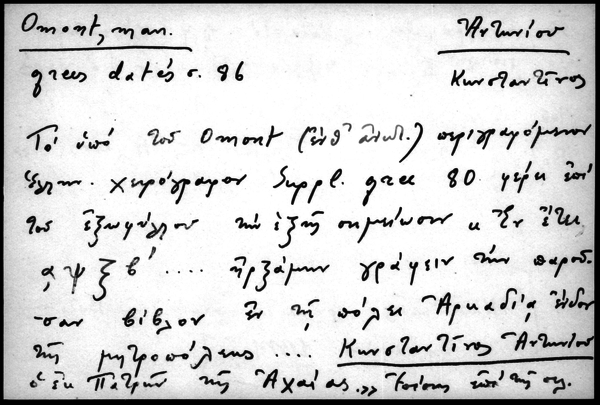 Omont, man. Ἀντωνίου
grecs datés σ. 86 Κωνσταντῖνος
Τὸ ὑπὸ τοῦ Omont (ἔνθ' ἀνωτ.) περιγραφόμενον
ἑλλην. χειρόγραφον Suppl. grec 80 φέρει ἐπὶ
τοῦ ἐξωφύλλου τὴν ἑξῆς σημείωσιν « Ἐν ἔτει
αψξβ' .... ἠρξάμην γράφειν τὴν παροῦ-
-σαν βίβλον ἐν τῇ πόλει Ἀρκαδίᾳ ἔνδον
τῆς μητροπόλεως .... Κωνσταντῖνος Ἀντωνίου
ὁ ἐκ Πατρῶν τῆς Ἀχαΐας » Ἐπίσης ἐπὶ τῆς σελ.